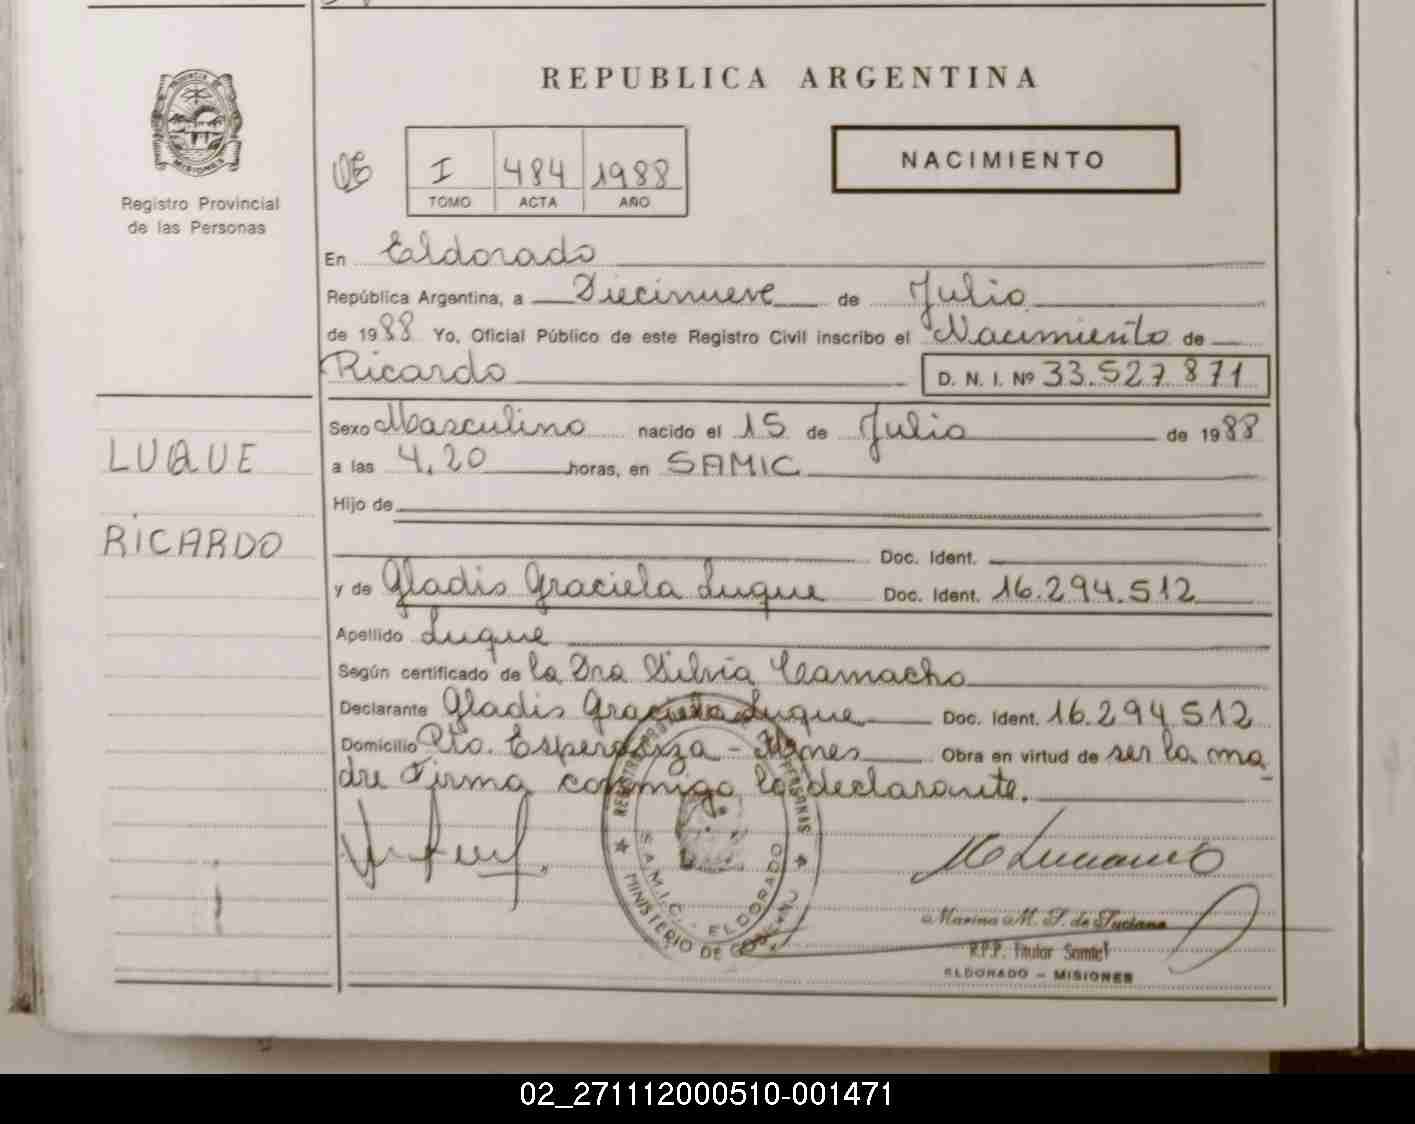 REPUBLICA ARGENTINA
PROVINCIA DE
MISIONES
Registro Provincial
de las Personas
I 484 1988
TOMO ACTA AÑO
NACIMIENTO
En Eldorado
República Argentina, a Diecinueve de Julio
de 1988 Yo, Oficial Público de este Registro Civil inscribo el Nacimiento de
Ricardo D. N. I. Nº 33.527.871
Sexo Masculino nacido el 15 de Julio de 1988
a las 4,20 horas, en SAMIC
Hijo de
Doc. Ident.
y de Gladis Graciela Luque Doc. Ident. 16.294.512
Apellido Luque
Según certificado de la Dra Silvia Camacho
Declarante Gladis Graciela Luque Doc. Ident. 16.294.512
Domicilio Pto. Esperanza - Mnes Obra en virtud de ser la ma
dre Firma conmigo la declarante.
LUQUE
RICARDO
S.A.M.I.C. ELDORADO
MINISTERIO DE GOBIERNO
Marina M. S. de Luciano
R.P.P. Titular Samic
ELDORADO - MISIONES
02_271112000510-001471